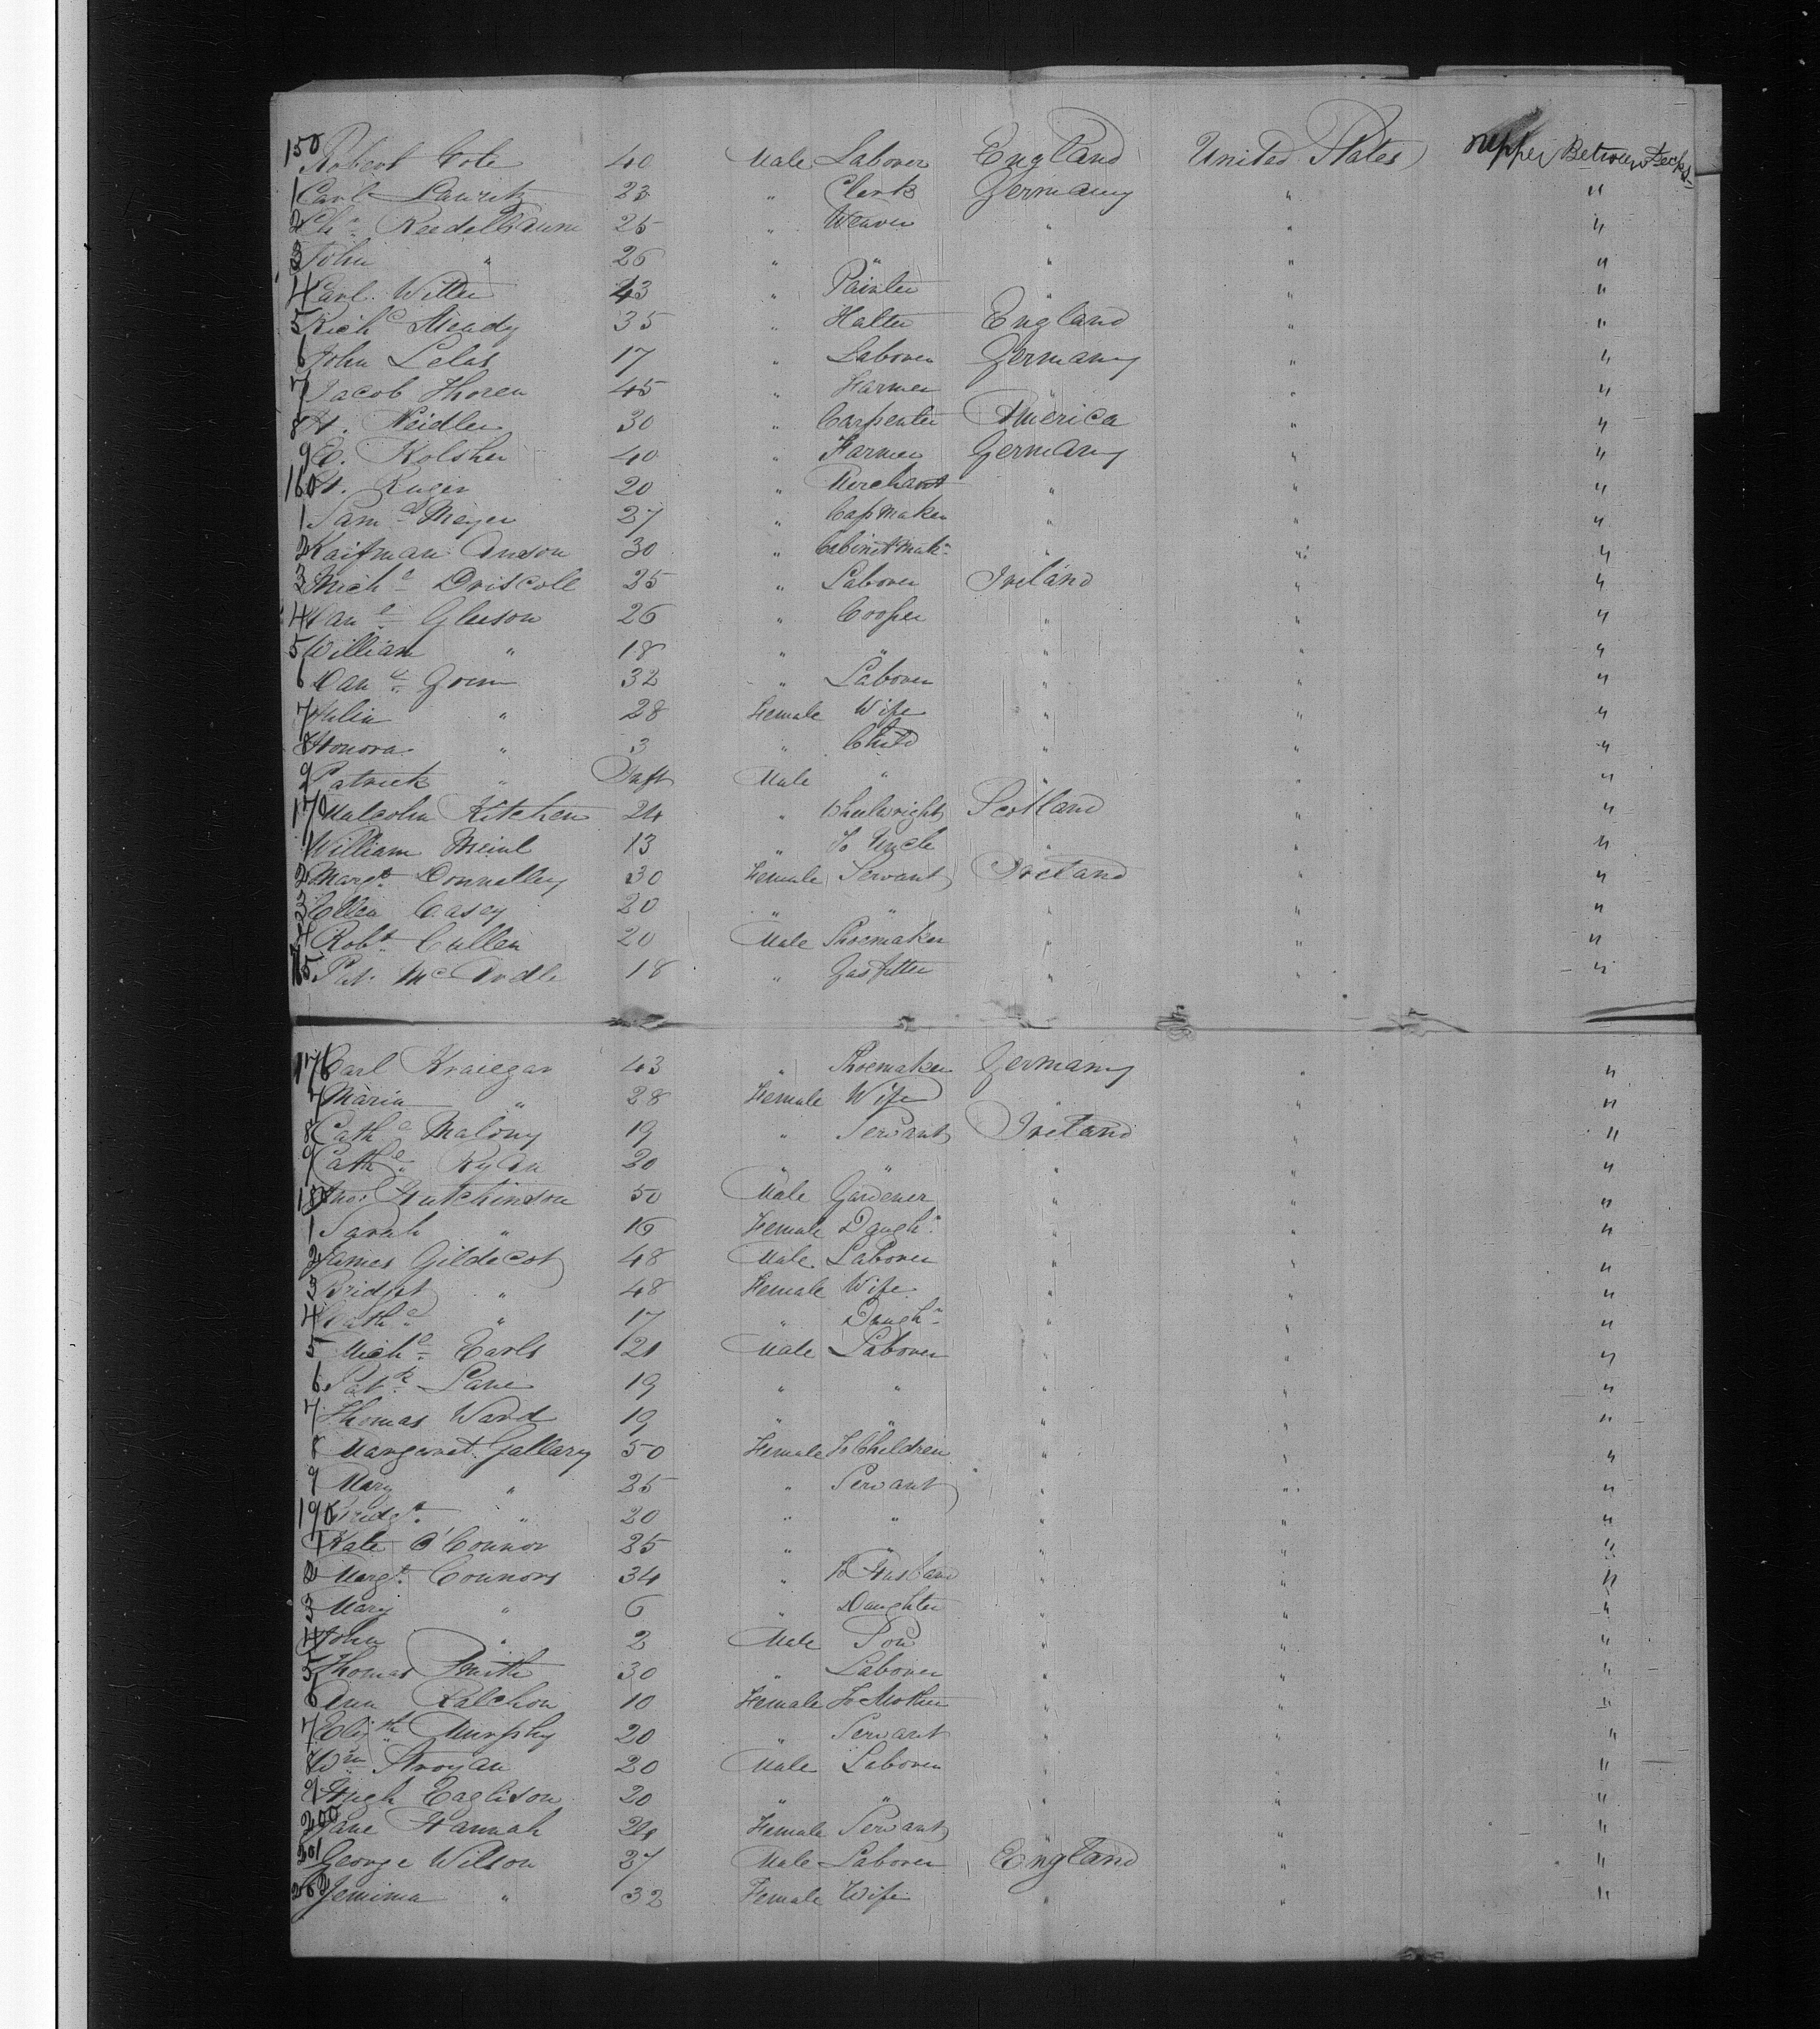 150 Robert Cole 40 Male Laborer England United States Upper Between Decks
1 Carl Lauritz 23 " Clerk Germany " "
2 Chs Reedelbaum 25 " Weaver " " "
3 John " 26 " " " " "
4 Carl Witter 43 " Painter " " "
5 Richd Meady 35 " Hatter England " "
6 John Lelas 17 " Laborer Germany " "
7 Jacob Thoren 45 " Farmer " " "
8 H. Neidler 30 " Carpenter America " "
9 E. Kolsher 40 " Farmer Germany " "
160 H. Ruger 20 " Merchant " " "
1 Saml Meyer 27 " Capmaker " " "
2 Kaifman Anson 30 " Cabinetmakr " " "
3 Michl Driscoll 25 " Laborer Ireland " "
4 Danl Gleeson 26 " Cooper " " "
5 William " 18 " " " " "
6 Danl Goem 32 " Laborer " " "
7 Julia " 28 Female Wife " " "
8 Honora " 3 " Child " " "
9 Patrick " Inft Male " " " "
170 Malcolm Kitchen 24 " Wheelwright Scotland " "
1 William Meinl 13 " To Uncle " " "
2 Margt Donnelley 30 Female Servant Ireland " "
3 Ellen Casey 20 " " " " "
4 Robt Cullen 20 Male Shoemaker " " "
175 Pat. McArdle 18 " Gasfitter " " "
176 Carl Kraiegar 43 " Shoemaker Germany " "
7 Maria " 28 Female Wife " " "
8 Cathe Malony 19 " Servant Ireland " "
9 Cathe Ryan 20 " " " " "
180 Thos Hutchinson 50 Male Gardener " " "
1 Sarah " 16 Female Daughr " " "
2 James Gildecot 48 Male Laborer " " "
3 Bridget " 48 Female Wife " " "
4 Cathe " 17 " Daughr " " "
5 Michl Earls 21 Male Laborer " " "
6 Patk Lane 19 " " " " "
7 Thomas Ward 19 " " " " "
8 Margaret Gallary 50 Female To Children " " "
9 Mary " 25 " Servant " " "
190 Bridgt " 20 " " " " "
1 Kate O'Connor 25 " " " " "
2 Margt Connors 34 " To Husband " " "
3 Mary " 6 " Daughter " " "
4 John " 2 Male Son " " "
5 Thomas Smith 30 " Laborer " " "
6 Ann Ralchon 10 Female To Mother " " "
7 Elizth Murphy 20 " Servant " " "
8 Wm Stroyan 20 Male Laborer " " "
9 Hugh Eaglison 20 " " " " "
200 Jane Hannah 24 Female Servant " " "
201 George Wilson 27 Male Laborer England " "
202 Jemima " 32 Female Wife " " "